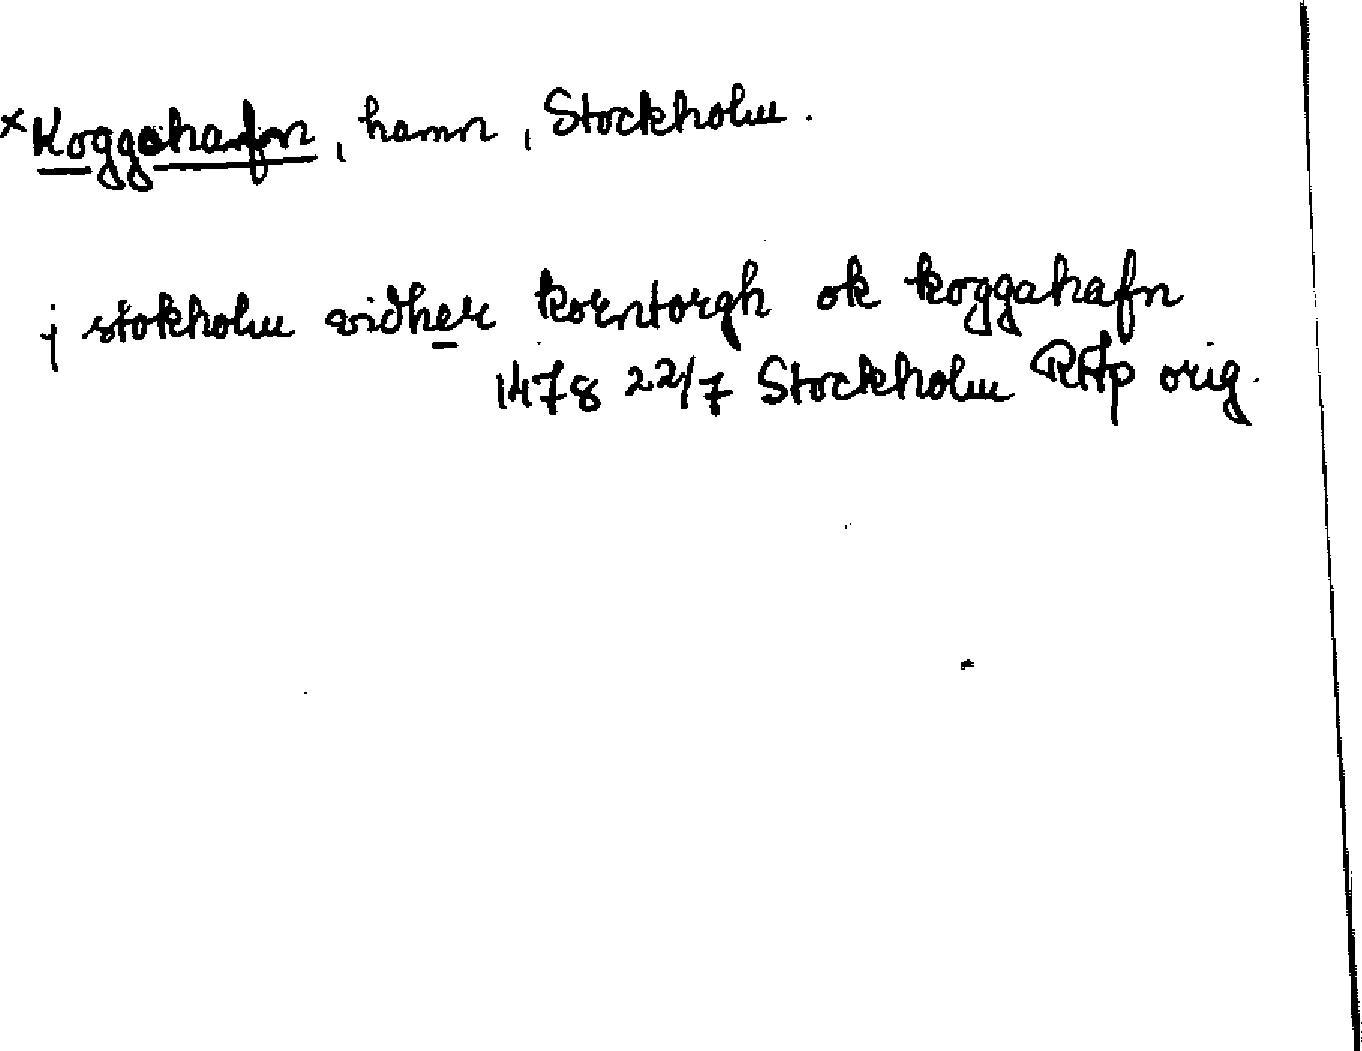 ×Koggahafn, hamn, Stockholm.
j stokholm widher korntorgh ok koggahafn
1478 22/7 Stockholm RAp orig.